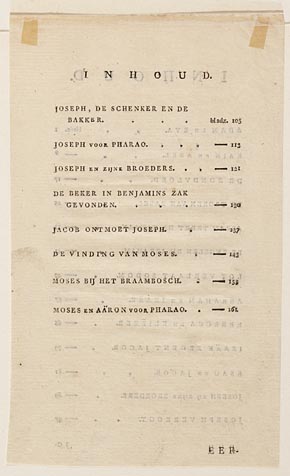 INHOUD.
JOSEPH, DE SCHENKER EN DE
BAKKER. . . . bladz. 105
JOSEPH VOOR PHARAO. . . . — 113
JOSEPH EN ZIJNE BROEDERS. . . — 121
DE BEKER IN BENJAMINS ZAK
GEVONDEN. . . . . — 130
JACOB ONTMOET JOSEPH. . . — 137
DE VINDING VAN MOSES. . . — 145
MOSES BIJ HET BRAAMBOSCH. . — 154
MOSES EN AÄRON VOOR PHARAO. . — 162
EER-